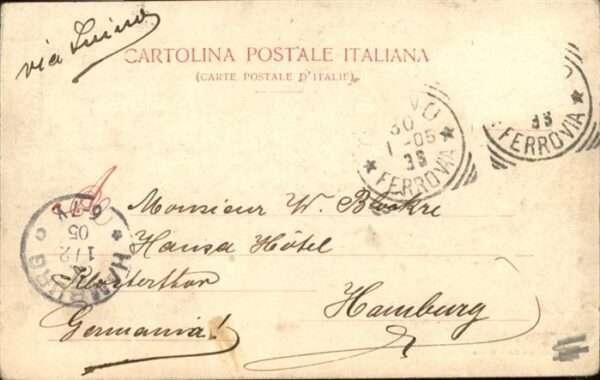 via Luino
CARTOLINA POSTALE ITALIANA
(CARTE POSTALE D'ITALIE)
30
1-05
3S
* FERROVIA *
3S
FERROVIA *
Monsieur W. Blockre
Hansa Hôtel
Klosterthor
Hamburg
Germania!
* HAMBURG
1/2
05
6-7V